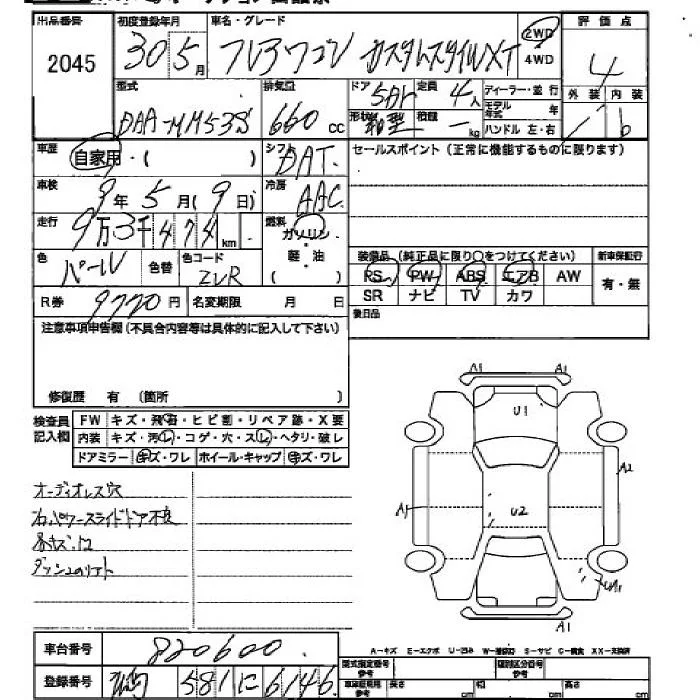 出品番号 初度登録年月 車名・グレード 2WD 評価点
2045 30 5月 フレアワゴン カスタムスタイルXT 4WD 4
型式 排気量 ドア 定員 ディーラー・並行 外装 内装
DAA-MM53S 660cc 5 4人 モデル年式 年
形状 箱型 積載 -kg ハンドル 左・右
車歴 自家用・( ) シフト DAT セールスポイント(正常に機能するものに限ります)
車検 9年5月(9日) 冷房 AAC
走行 9万3千474km 燃料 ガソリン
軽・油
色 パール 色替 色コード ZVR ( )
装備品(純正品に限り○をつけてください) 新車保証行
PS PW ABS エアB AW 有・無
SR ナビ TV カワ
R券 9770円 名変期限 月 日 後日品
注意事項申告欄(不具合内容等は具体的に記入して下さい)
修復歴 有 (箇所 )
検査員記入欄 FW キズ・飛石・ヒビ割・リペア跡・X要
内装 キズ・汚レ・コゲ・穴・スレ・ヘタリ・破レ
ドアミラー キズ・ワレ ホイール・キャップ キズ・ワレ
オーディオレス穴
右パワースライドドア不良
A1 A1
U1
A2
A1 U2
A1
車台番号 820600
登録番号 581 に 6146
A-キズ E-エクボ U-凹み W-補修跡 S-サビ C-腐食 XX-交換済
型式指定番号 参考 類別区分番号 参考
長さ cm 幅 cm 高さ cm